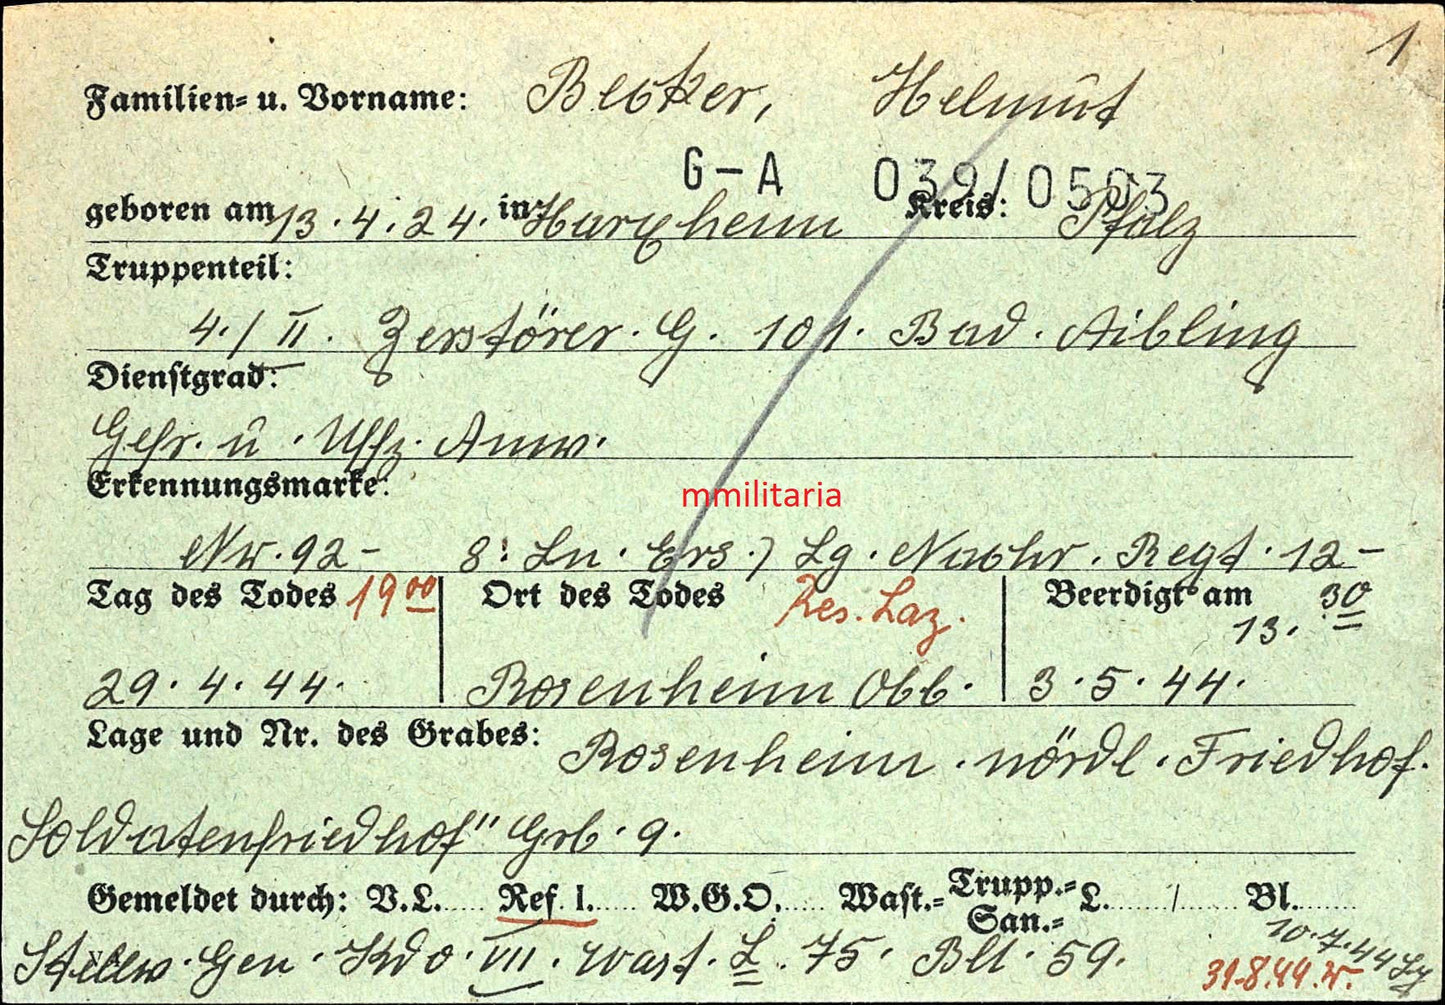 1
Familien- u. Vorname: Becker, Helmut
G-A 039/0503
geboren am 13.4.24. in Harxheim Kreis: Pfalz
Truppenteil:
4./II. Zerstörer. G. 101. Bad. Aibling
Dienstgrad:
Gefr. u. Uffz. Anw.
Erkennungsmarke:
mmilitaria
Nr. 92- 8. Ln. Ers.) Lg. Nachr. Regt. 12-
Tag des Todes 19⁰⁰ Ort des Todes Res. Laz. Beerdigt am 13.³⁰
29.4.44. Rosenheim Obb. 3.5.44.
Lage und Nr. des Grabes: Rosenheim. nördl. Friedhof.
Soldatenfriedhof" Grb. 9.
Gemeldet durch: V.L. Ref. I. W.G.O. Wast.- Trupp.- San.- L. / Bl.
Stellv. Gen. Kdo. VII. Wast. L. 75. Bll. 59.
10.7.44
31.8.44.